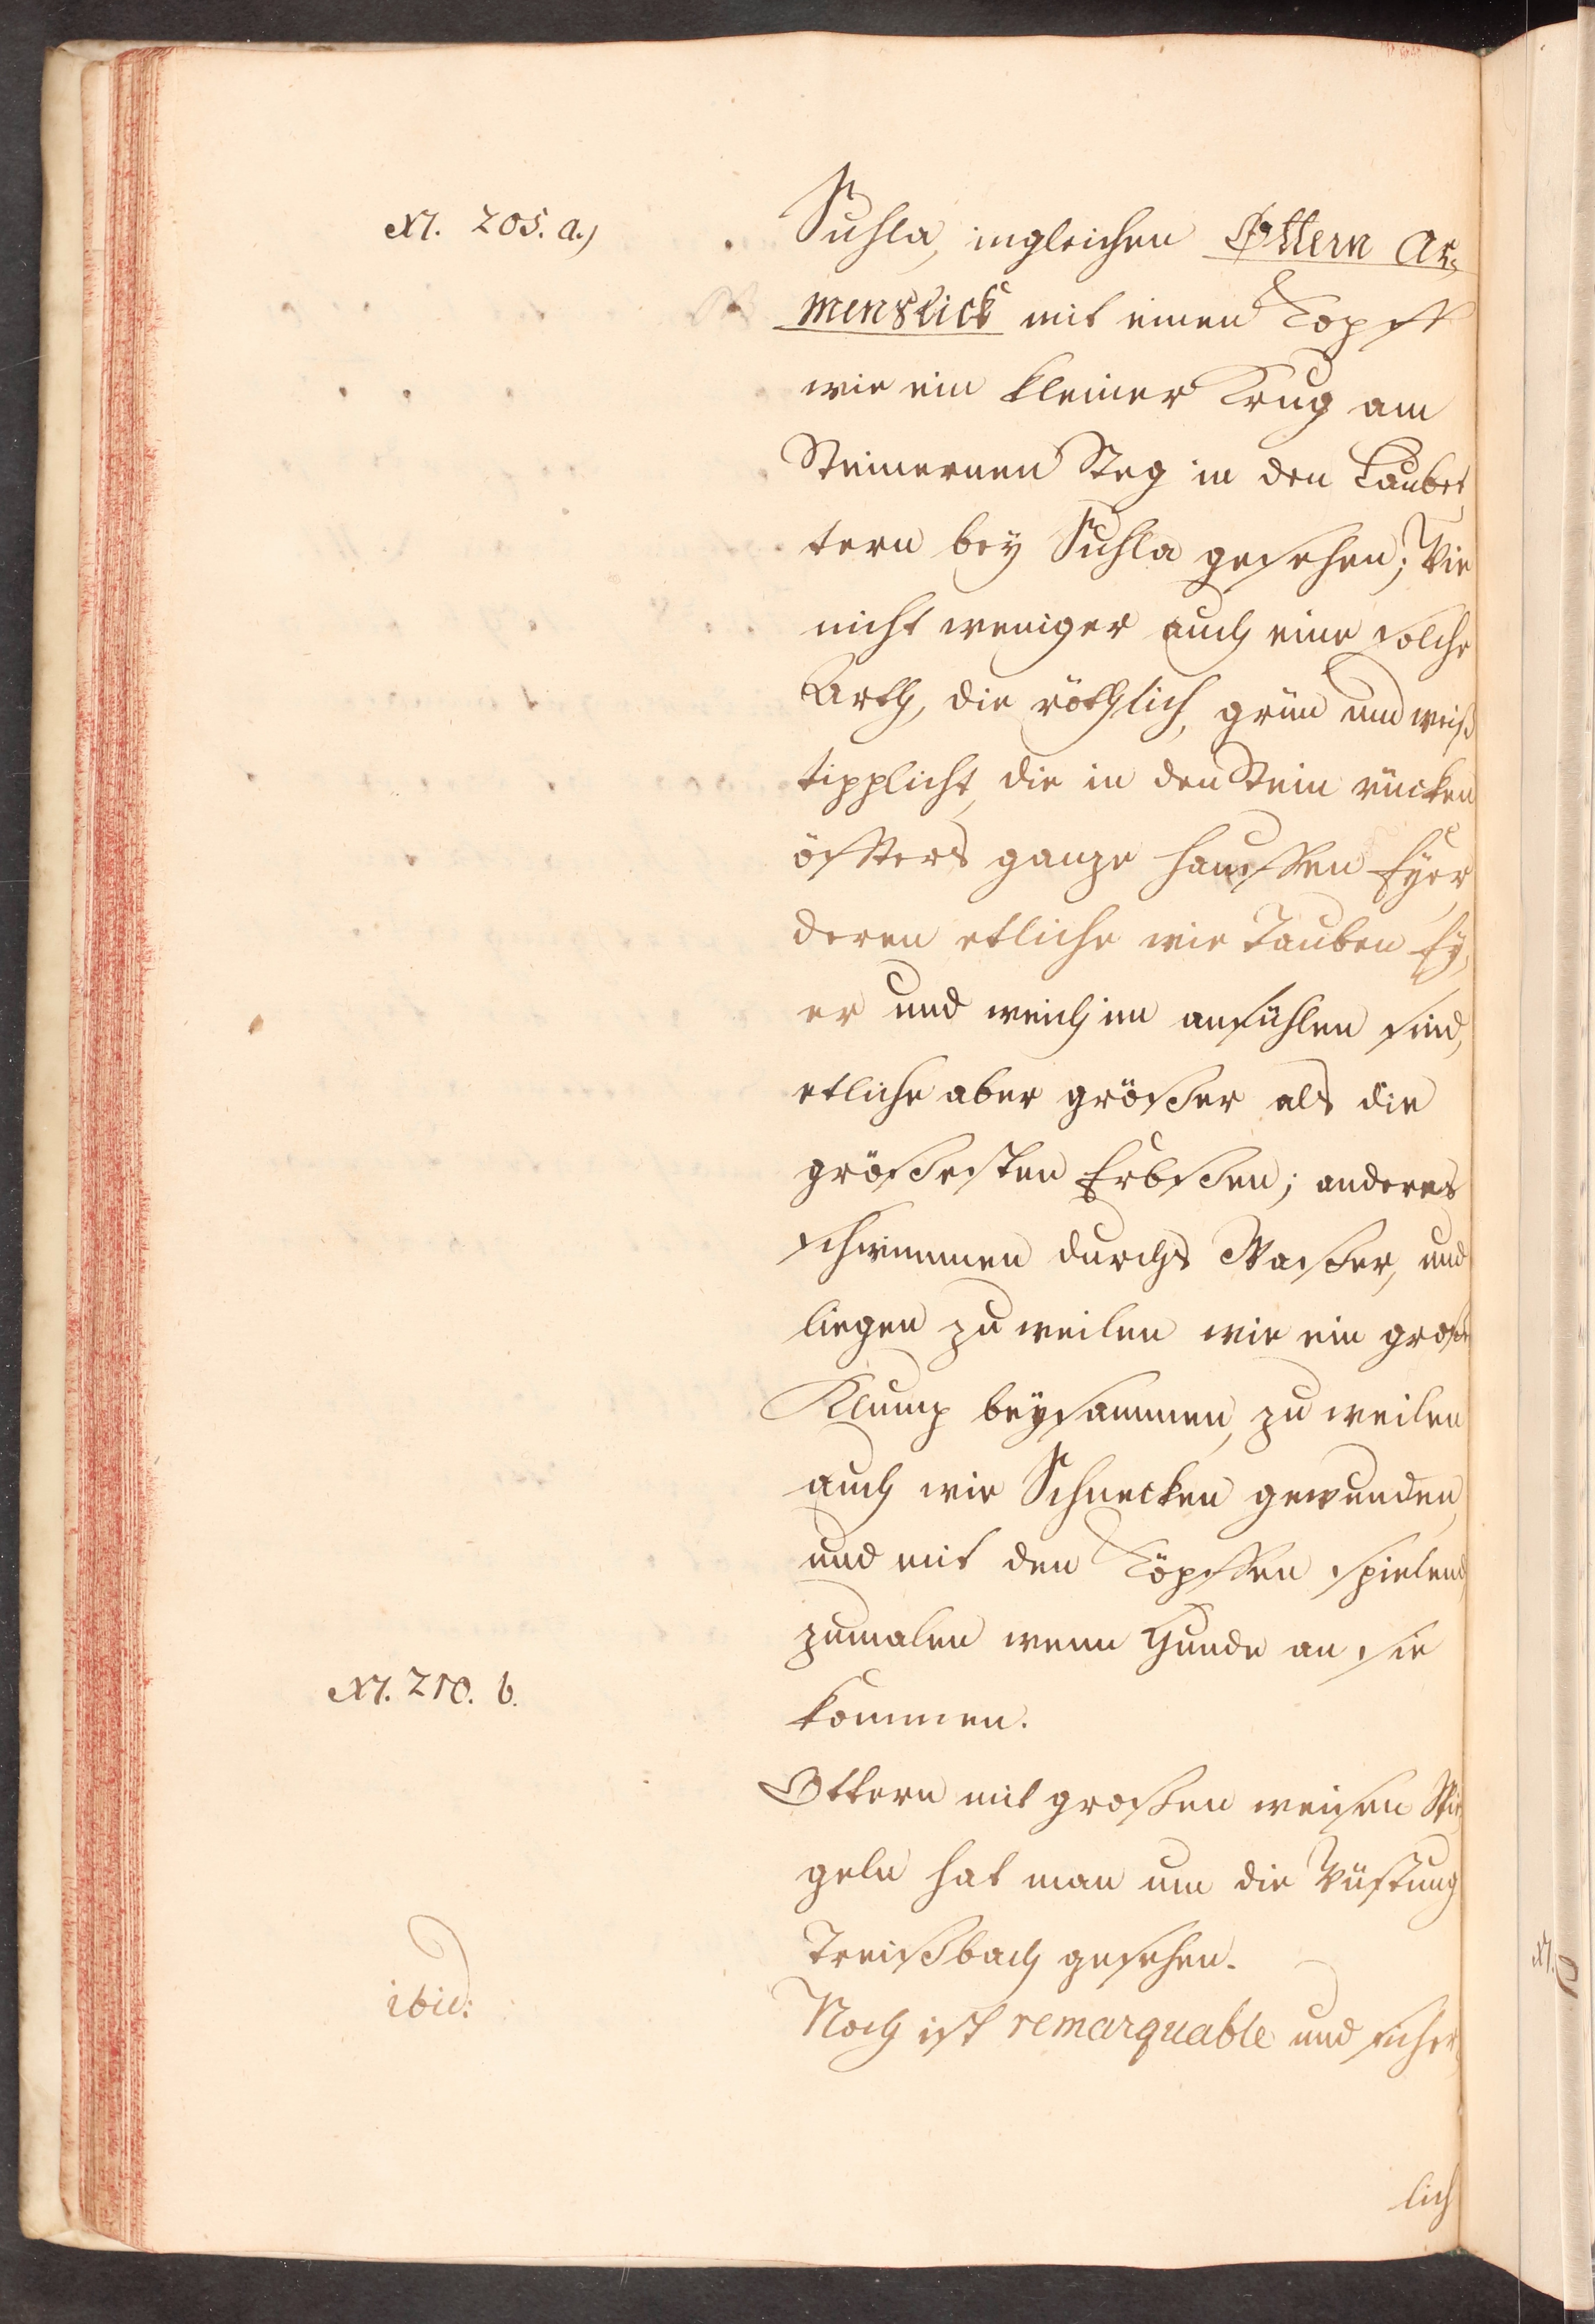 XI. 205. a.)
Suhla, ingleichen Ottern Ar-
mensdick mit einen Kopff
wie ein kleiner Krug am
Steinernen Steg in den Laubet
tern bey Suhla gesehen; Wie
nicht weniger auch eine solche
Arth, die röthlich, grün und weiß
tipplicht, die in den Stein rücken
öffters ganze hauffen Eyer,
deren etliche wie Tauben Ey,
er und weich im anfühlen sind,
etliche aber größer als die
größesten Erbßen; anders
schwimmen durchs Waßer, und
liegen zu weilen wie ein große
Klump beysammen, zu weilen
auch wie Schnecken gewunden,
und mit den Köpffen spielend,
zumalen wenn Hunde an sie
XI. 210. b.
kommen.
Ottern mit großen weisen Spie
geln hat man um die Wüstung
Treißbach gesehen.
ibid:
Noch ist remarquable und sicher,
lich